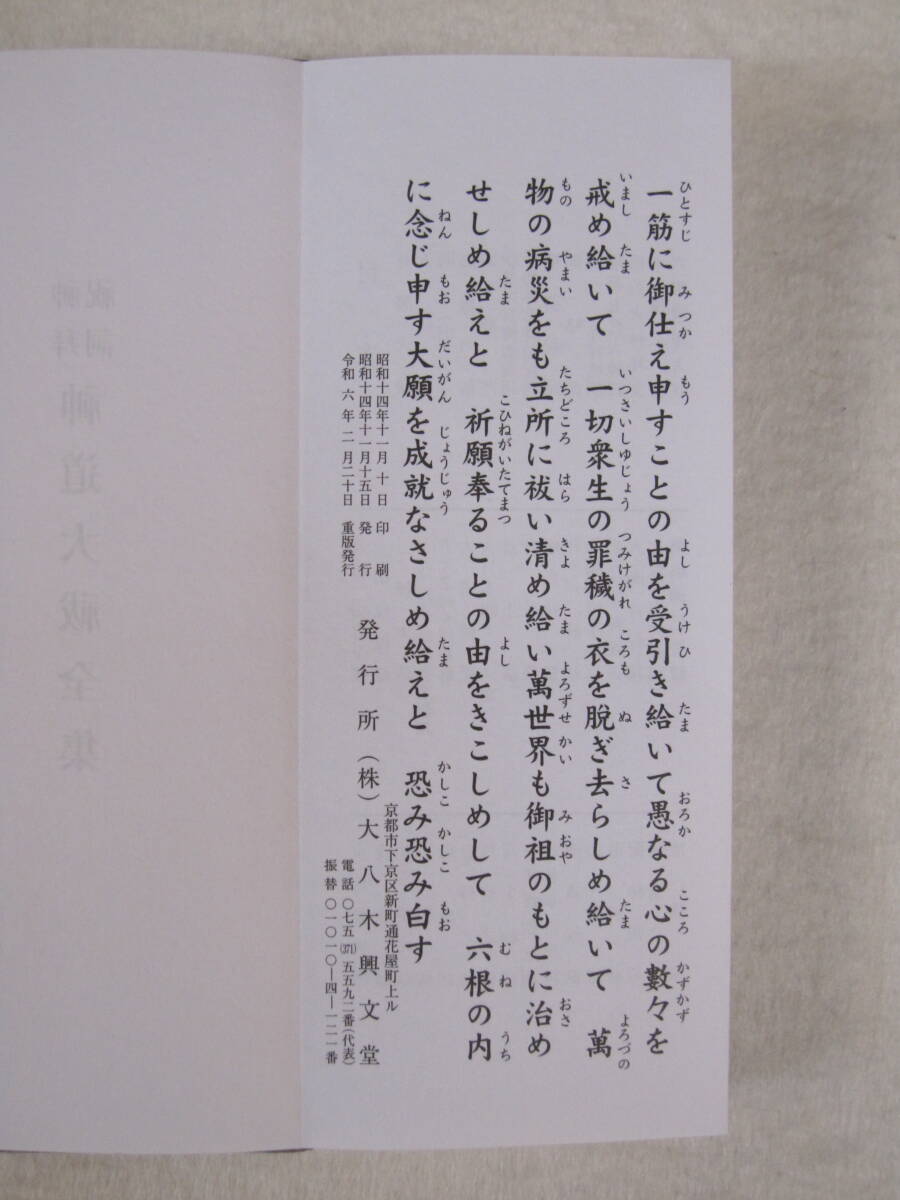 一筋に御仕え申すことの由を受引き給いて愚なる心の數々を
戒め給いて　一切衆生の罪穢の衣を脱ぎ去らしめ給いて　萬
物の病災をも立所に祓い清め給い萬世界も御祖のもとに治め
せしめ給えと　祈願奉ることの由をきこしめして　六根の内
に念じ申す大願を成就なさしめ給えと　恐み恐み白す
昭和十四年十一月十日　印刷
昭和十四年十一月十五日　発行
令和六年二月二十日　重版発行
京都市下京区新町通花屋町上ル
発行所（株）大八木興文堂
電話〇七五(371)五五九二番(代表)
振替〇一〇一〇―四―一二一一番